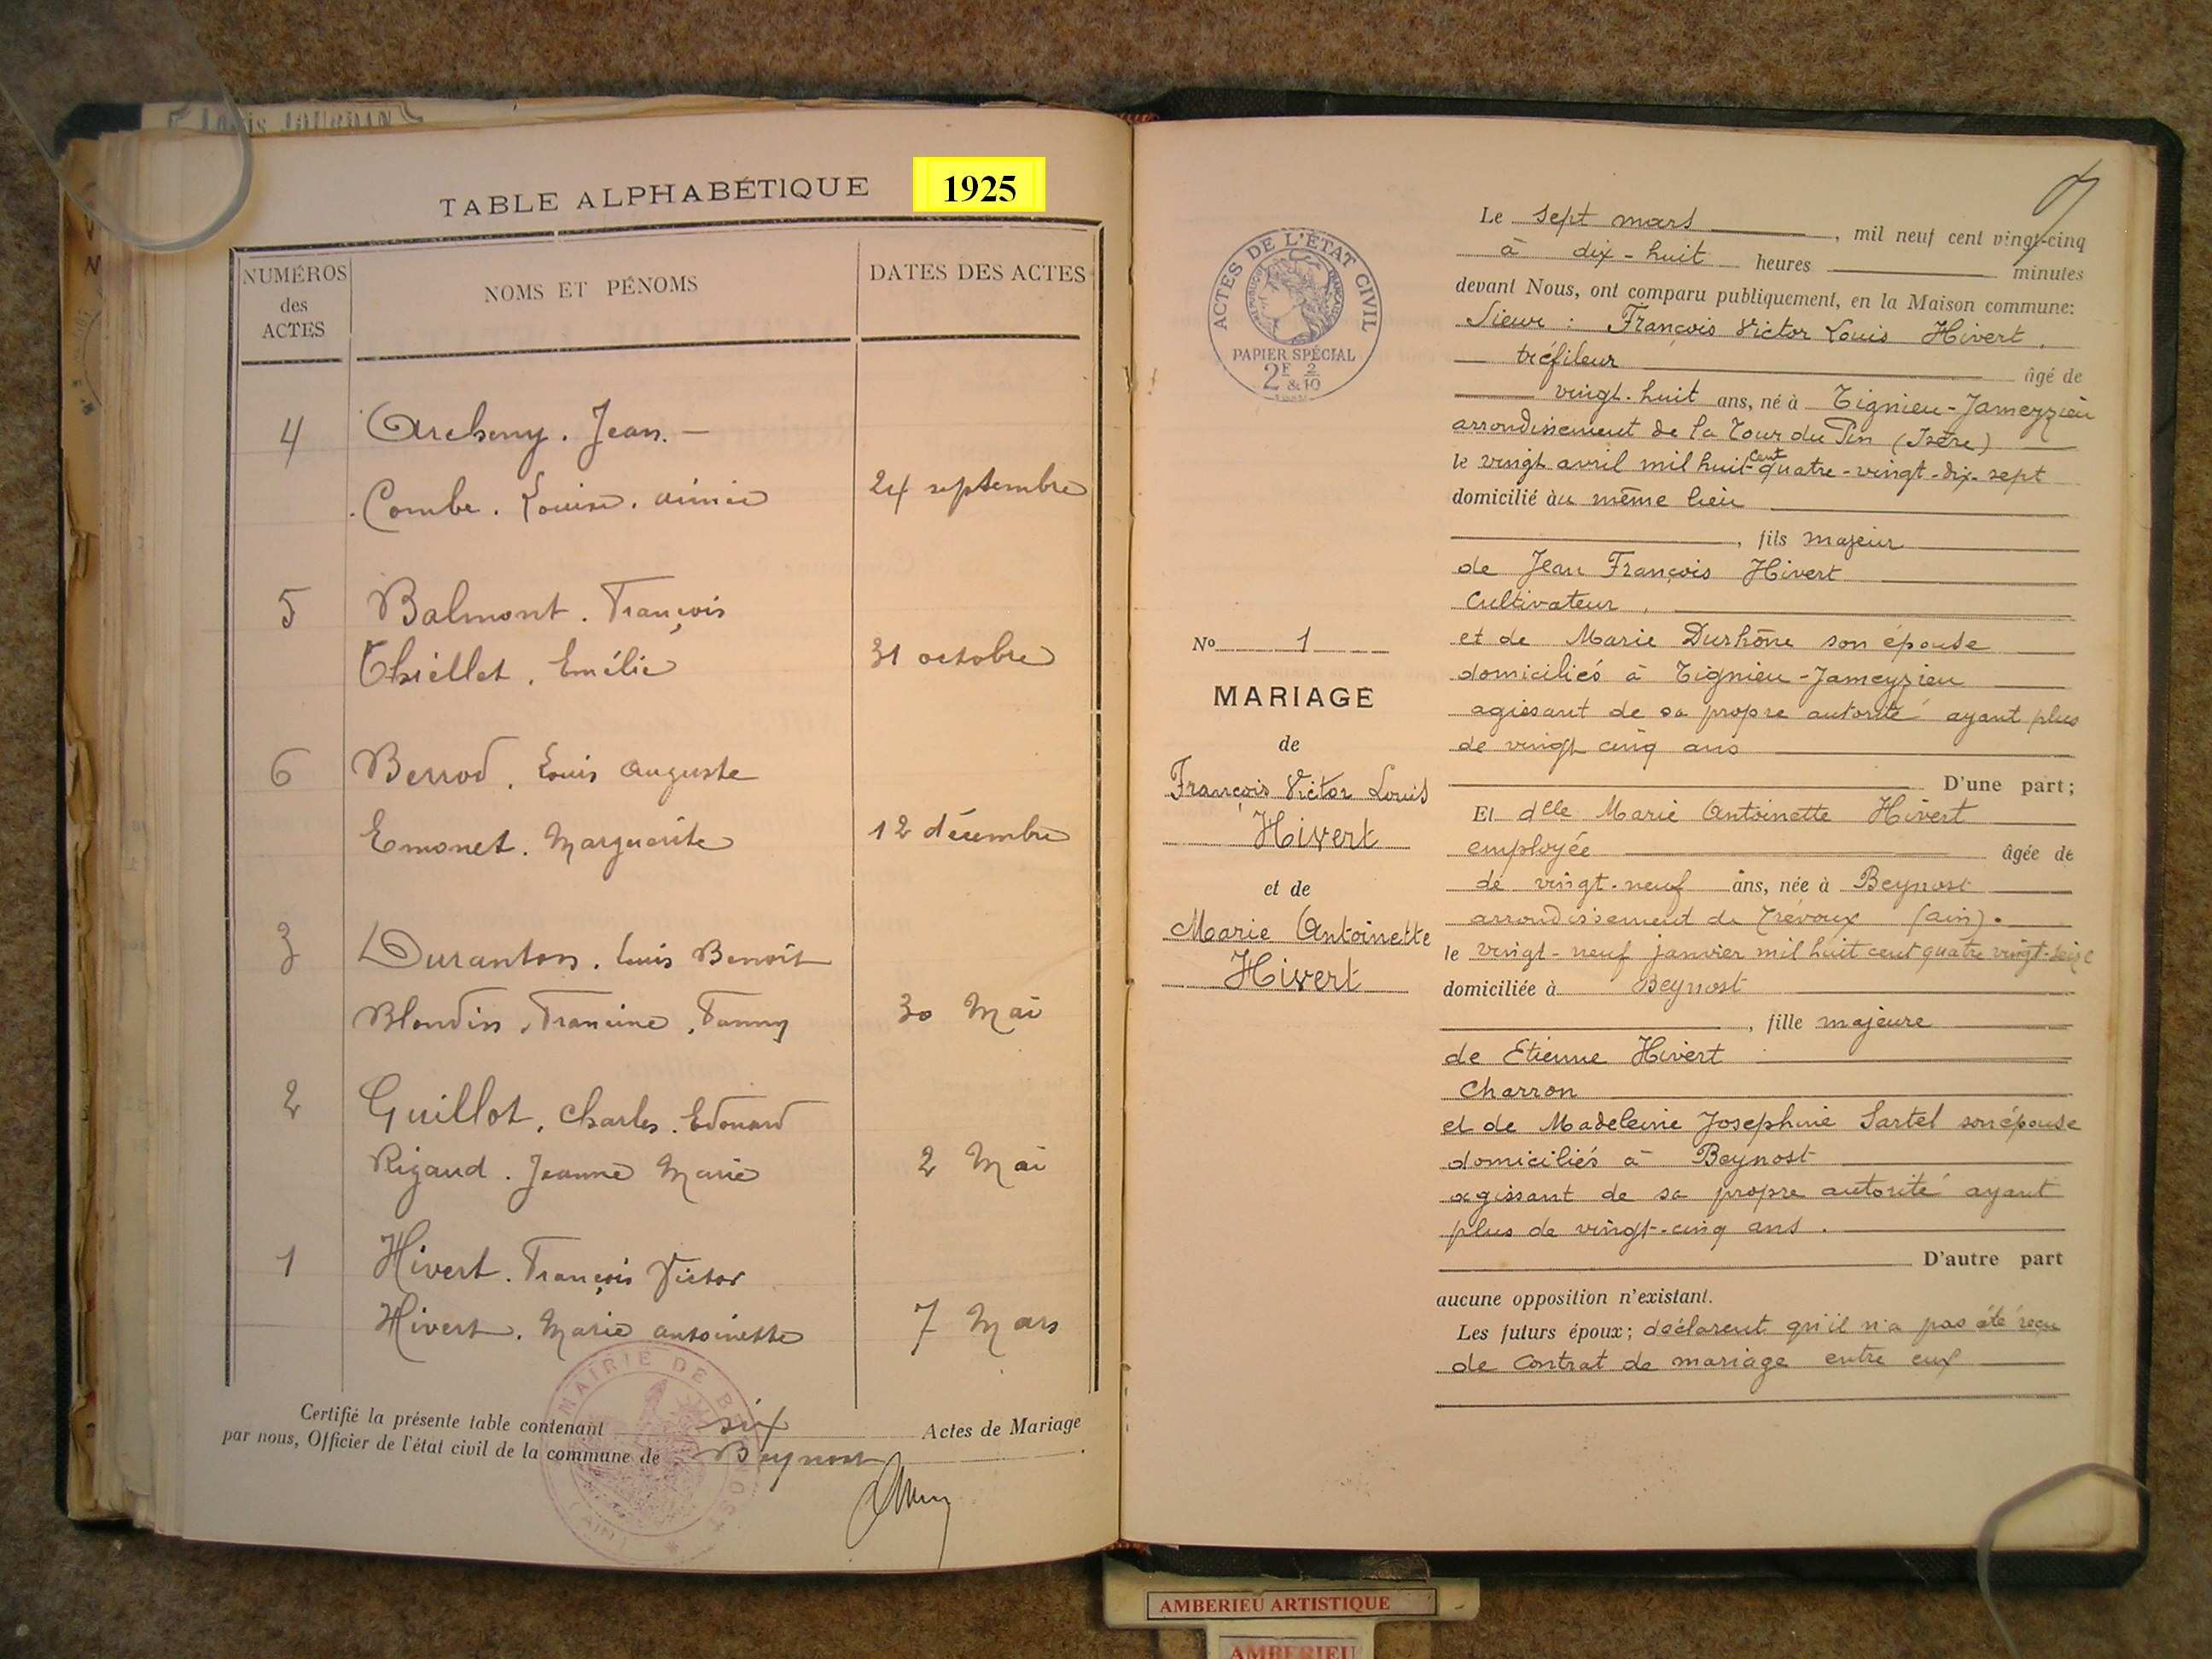 Louis JOURDAN
TABLE ALPHABÉTIQUE 1925
NUMÉROS des ACTES
NOMS ET PÉNOMS
DATES DES ACTES
4 Archeny. Jean. —
Combe. Louise. aimée 24 septembre
5 Balmont. François
Thiellet, Emélie 31 octobre
6 Berrod, Louis Auguste
Emonet. Marguerite 12 décembre
3 Duranton. Louis Benoit
Blondin, Francine, Fanny 30 Mai
2 Guillot, Charles. Edouard
Rigaud. Jeanne Marie 2 Mai
1 Hivert. François Victor
Hivert. Marie antoinette 7 Mars
MAIRIE DE BEYNOST (AIN)
Certifié la présente table contenant six Actes de Mariage
par nous, Officier de l'état civil de la commune de Beynost
ACTES DE L'ÉTAT CIVIL
PAPIER SPÉCIAL
2F & 2/10
No 1
MARIAGE
de
François Victor Louis
Hivert
et de
Marie Antoinette
Hivert
Le sept mars, mil neuf cent vingt-cinq
à dix-huit heures minutes
devant Nous, ont comparu publiquement, en la Maison commune:
Sieur : François Victor Louis Hivert,
tréfileur âgé de
vingt-huit ans, né à Tignieu-Jameyzieu
arrondissement de la Tour du Pin (Isère)
le vingt avril mil huit cent quatre-vingt-dix-sept
domicilié au même lieu
, fils majeur
de Jean François Hivert
Cultivateur,
et de Marie Durhône son épouse
domiciliés à Tignieu-Jameyzieu
agissant de sa propre autorité ayant plus
de vingt cinq ans
D'une part;
Et dlle Marie Antoinette Hivert
employée âgée de
de vingt-neuf ans, née à Beynost
arrondissement de Trévoux (ain).
le vingt-neuf janvier mil huit cent quatre vingt-seize
domiciliée à Beynost
, fille majeure
de Etienne Hivert
Charron
et de Madeleine Josephine Sartel son épouse
domiciliés à Beynost
agissant de sa propre autorité ayant
plus de vingt-cinq ans.
D'autre part
aucune opposition n'existant.
Les futurs époux; déclarent qu'il n'a pas été reçu
de Contrat de mariage entre eux
AMBERIEU ARTISTIQUE
AMBERIEU